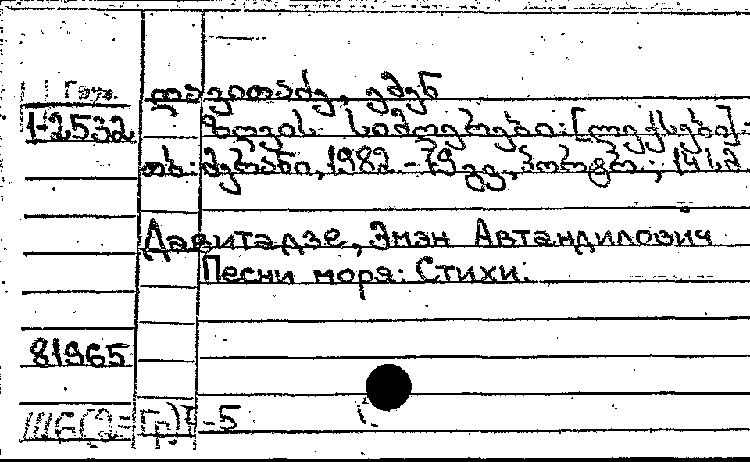 Груз.
დავითაძე, ემენ
1-2532 ზღვის სიმღერები: [ლექსები].-
თბ.: მერანი, 1982.-79გვ., პორტრ.; 14სმ
Давитадзе, Эмэн Автандилович
Песни моря: Стихи.
81965
Ш6(2=Гр)7-5